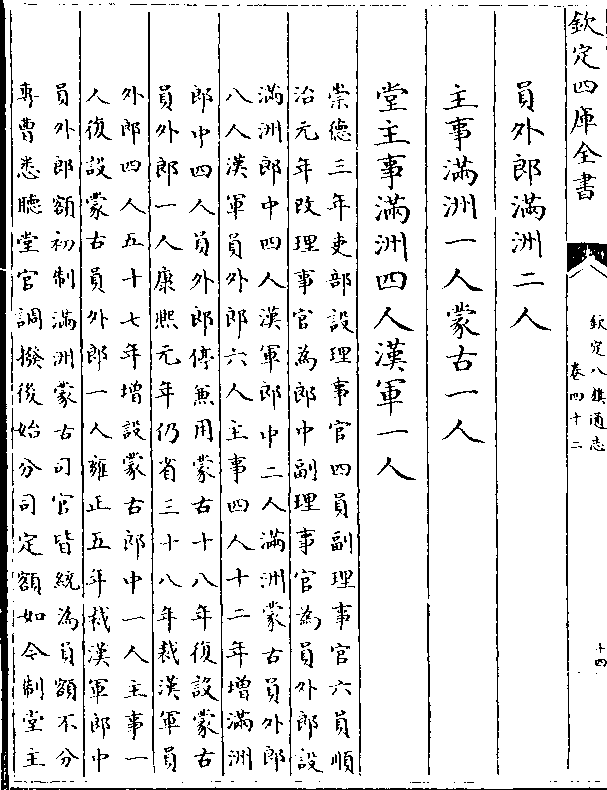 欽定四庫全書
欽定八旗通志
卷四十二
十四
員外郎滿洲二人
主事滿洲一人蒙古一人
堂主事滿洲四人漢軍一人
崇德三年吏部設理事官四員副理事官六員順
治元年改理事官為郎中副理事官為員外郎設
滿洲郎中四人漢軍郎中二人滿洲蒙古員外郎
八人漢軍員外郎六人主事四人十二年增滿洲
郎中四人員外郎停兼用蒙古十八年復設蒙古
員外郎一人康熙元年仍省三十八年裁漢軍員
外郎四人五十七年增設蒙古郎中一人主事一
人復設蒙古員外郎一人雍正五年裁漢軍郎中
員外郎額初制滿洲蒙古司官皆統為員額不分
専曹悉聽堂官調撥後始分司定額如今制堂主